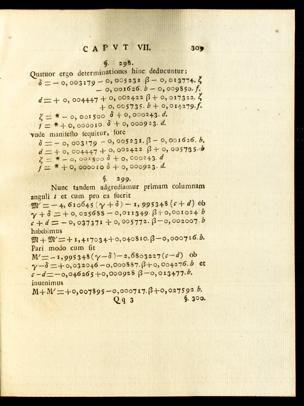 CAPVT VII. 309
§. 298.
Quatuor ergo determinationes hinc deducuntur:
δ = − 0, 003179 − 0, 005231 β − 0, 013774. ζ
− 0, 001626. b − 0, 009850. f.
d = + 0, 004447 + 0, 002422 β + 0, 017322. ζ
+ 0, 005735. b + 0, 014279. f.
ζ = * − 0, 001500 δ + 0, 000243. d.
f = * + 0, 000010 δ + 0, 000923. d.
vnde manifesto sequitur, fore
δ = − 0, 003179 − 0, 005231. β − 0, 001626. b.
d = + 0, 004447 + 0, 002422 β + 0, 005735. b
ζ = * − 0, 001500 δ + 0, 000243. d
f = * + 0, 000010 δ + 0, 000923. d.
§. 299.
Nunc tandem adgrediamur primam columnam
anguli s et cum pro ea fuerit
𝔐' = − 4, 610645 (γ + δ) − 1, 995348 (c + d) ob
γ + δ = + 0, 025688 − 0, 011349. β + 0, 001024 b
c + d = − 0, 037371 + 0, 005772. β − 0, 002007 b
habebimus
𝔐 + 𝔐' = + 1, 417034 + 0, 040810. β − 0, 000716. b.
Pari modo cum sit
M' = − 1, 995348 (γ − δ) − 2, 6803227 (c − d) ob
γ − δ = + 0, 032046 − 0, 000887. β + 0, 004276. b et
c − d = − 0, 046265 + 0, 000928 β − 0, 013477. b.
inuenimus
M + M' = + 0, 007895 − 0, 000717. β + 0, 027592 b.
Qq 3 §. 300.